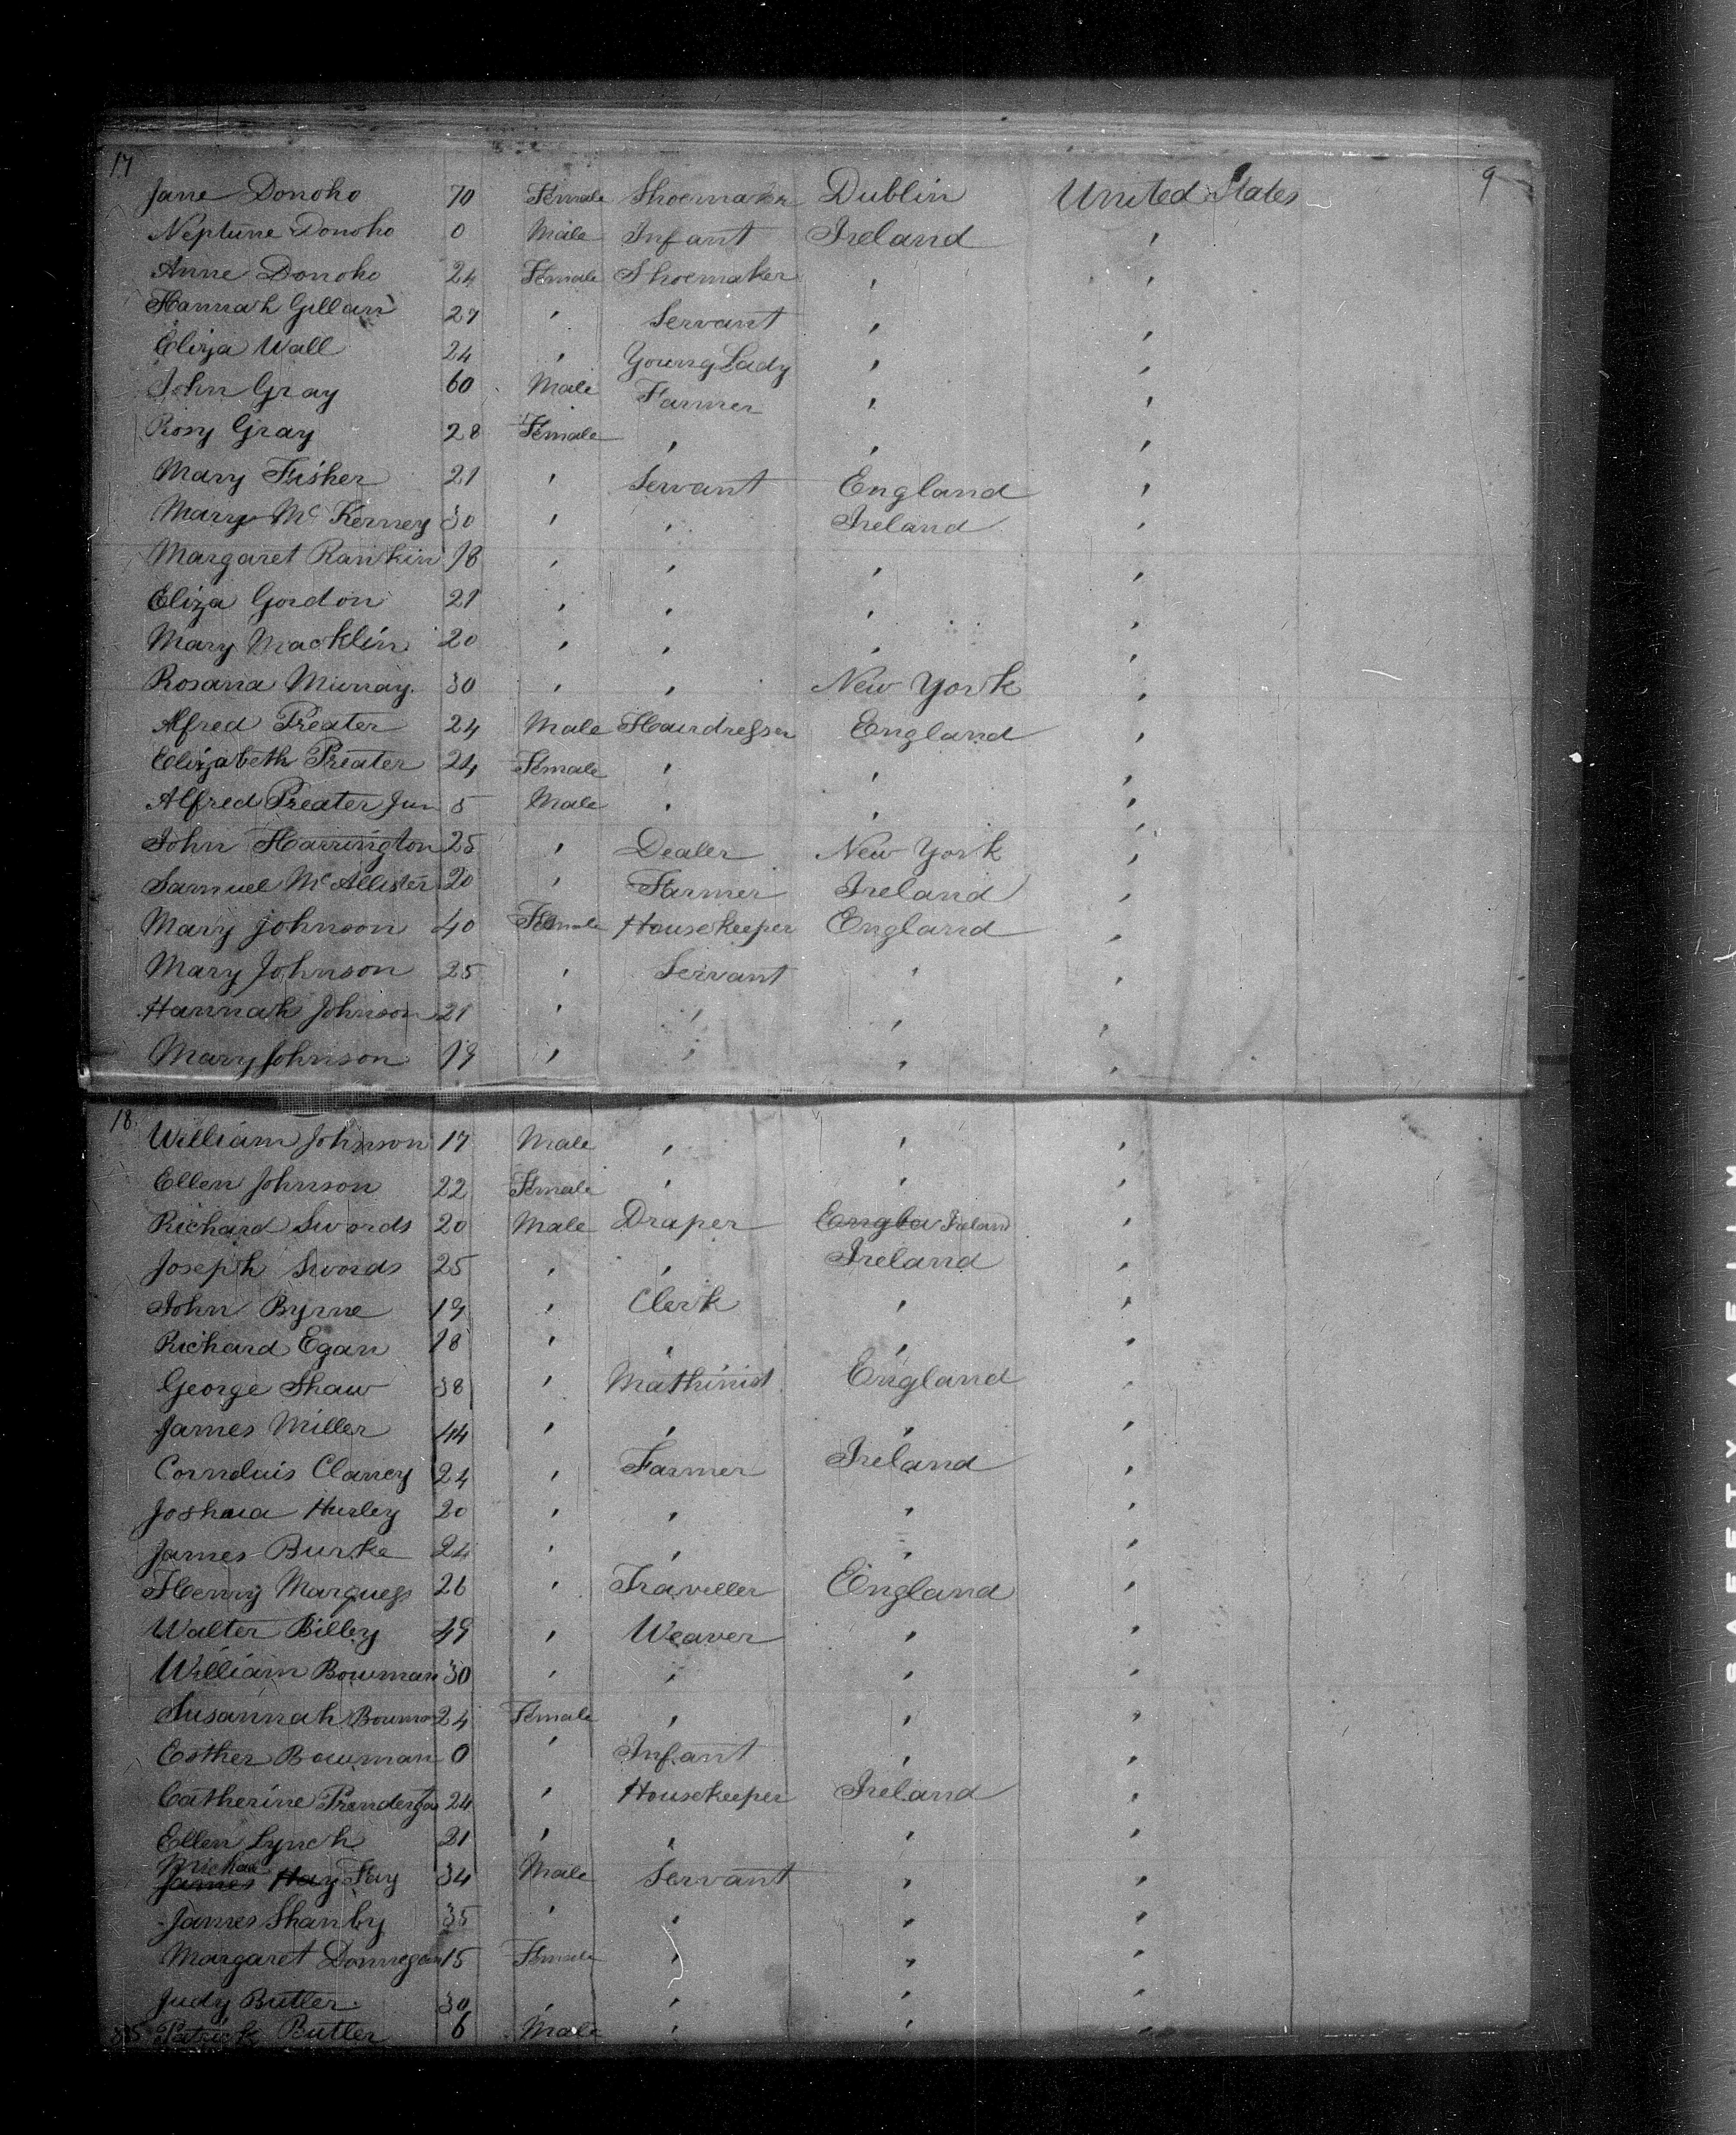 17 9
Jane Donoho 70 Female Shoemaker Dublin United States
Neptune Donoho 0 Male Infant Ireland "
Anne Donoho 24 Female Shoemaker " "
Hannah Gillan 27 " Servant " "
Eliza Wall 24 " Young Lady " "
John Gray 60 Male Farmer " "
Rosy Gray 28 Female " " "
Mary Fisher 21 " Servant England "
Mary Mc Kerney 30 " " Ireland "
Margaret Rankin 18 " " " "
Eliza Gordon 21 " " " "
Mary Macklin 20 " " " "
Rosana Murray 30 " " New York "
Alfred Preater 24 Male Hairdresser England "
Elizabeth Preater 24 Female " " "
Alfred Preater Jun 5 Male " " "
John Harrington 25 " Dealer New York "
Samuel McAllister 20 " Farmer Ireland "
Mary Johnson 40 Female Housekeeper England "
Mary Johnson 25 " Servant " "
Hannah Johnson 21 " " " "
Mary Johnson 19 " " " "
18
William Johnson 17 Male " " "
Ellen Johnson 22 Female " " "
Richard Swords 20 Male Draper Englan Ireland "
Joseph Swords 25 " " Ireland "
John Byrne 19 " Clerk " "
Richard Egan 18 " " " "
George Shaw 38 " Mathinist England "
James Miller 44 " " " "
Corneluis Clancy 24 " Farmer Ireland "
Joshua Hurley 20 " " " "
James Burke 24 " " " "
Henry Marquess 26 " Traveller England "
Walter Billey 49 " Weaver " "
William Bowman 30 " " " "
Susannah Bowman 24 Female " " "
Esther Bowman 0 " Infant " "
Catherine Prendergas 24 " Housekeeper Ireland "
Ellen Lynch 21 " " " "
Michael
James Hay Fay 34 Male Servant " "
James Shanby 35 " " " "
Margaret Donnegan 15 Female " " "
Judy Butler 30 " " " "
Patrick Butler 6 Male " " "
SAFETY